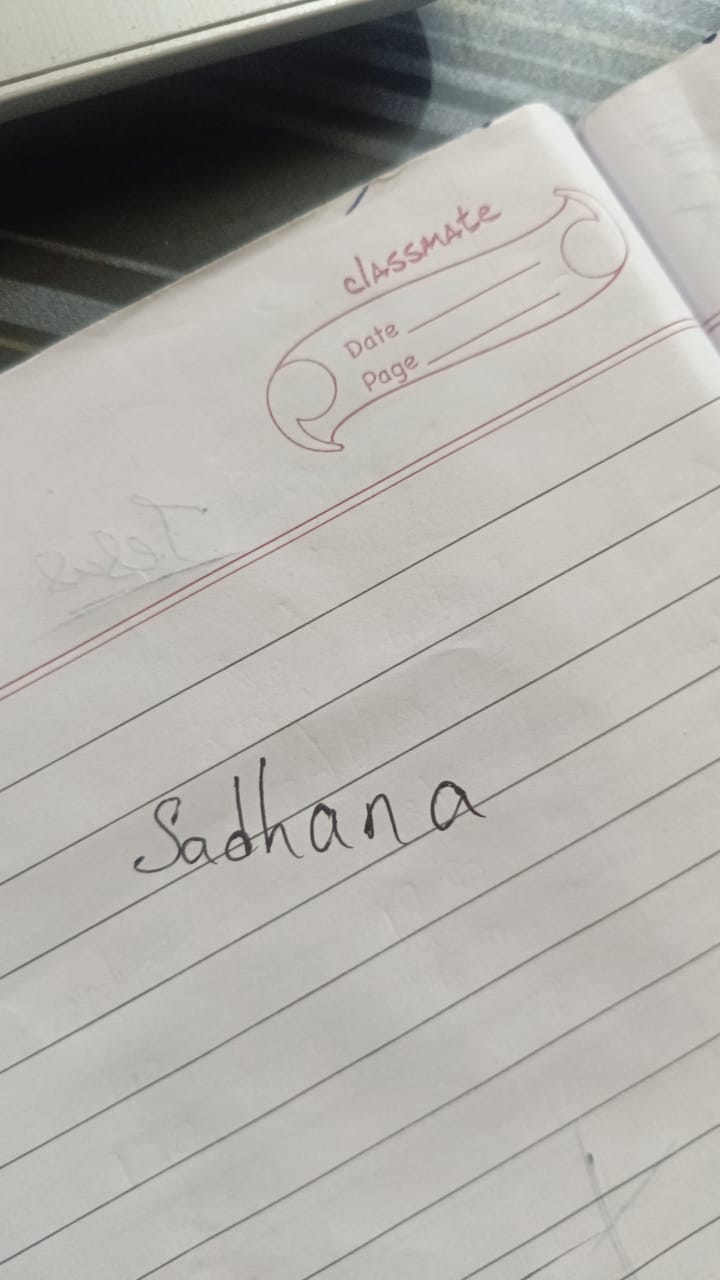 classmate
Date
Page
Sadhana